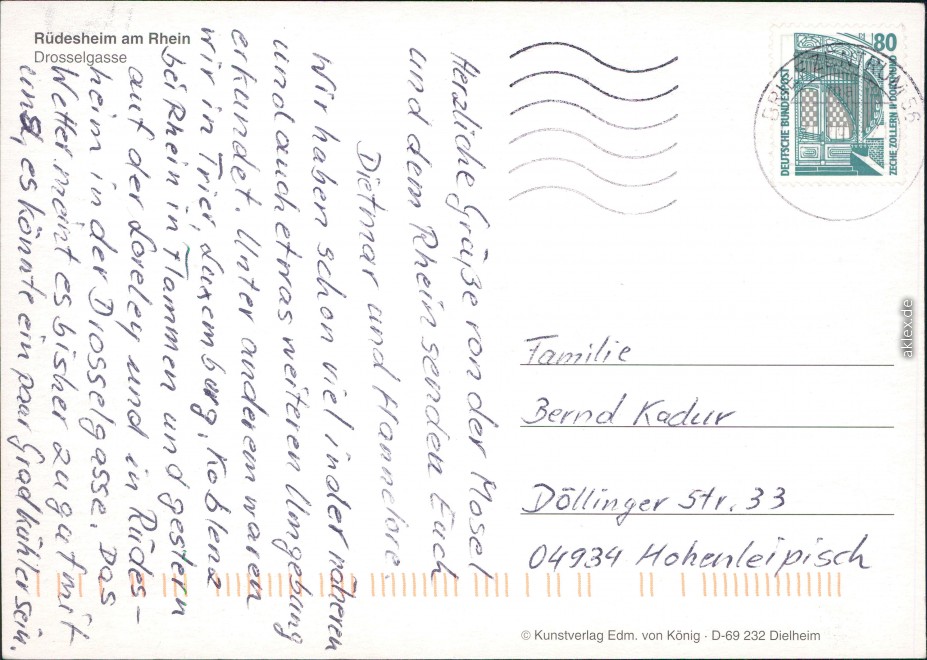 Rüdesheim am Rhein
Drosselgasse
Herzliche Grüße von der Mosel
und dem Rhein senden Euch
Dietmar und Hannelore.
Wir haben schon viel in der näheren
und auch etwas weiteren Umgebung
erkundet. Unter anderem waren
wir in Trier, Luxemburg, Koblenz
bei Rhein in Flammen und gestern
auf der Loreley und in Rüdes-
heim in der Drosselgasse. Das
Wetter meint es bisher zu gut mit
uns, es könnte ein paar Grad kühler sein.
80
DEUTSCHE BUNDESPOST
ZECHE ZOLLERN II DORTMUND
BRIEFZENTRUM 56
Familie
Bernd Kadur
Döllinger Str. 33
04934 Hohenleipisch
© Kunstverlag Edm. von König · D-69 232 Dielheim
aklex.de